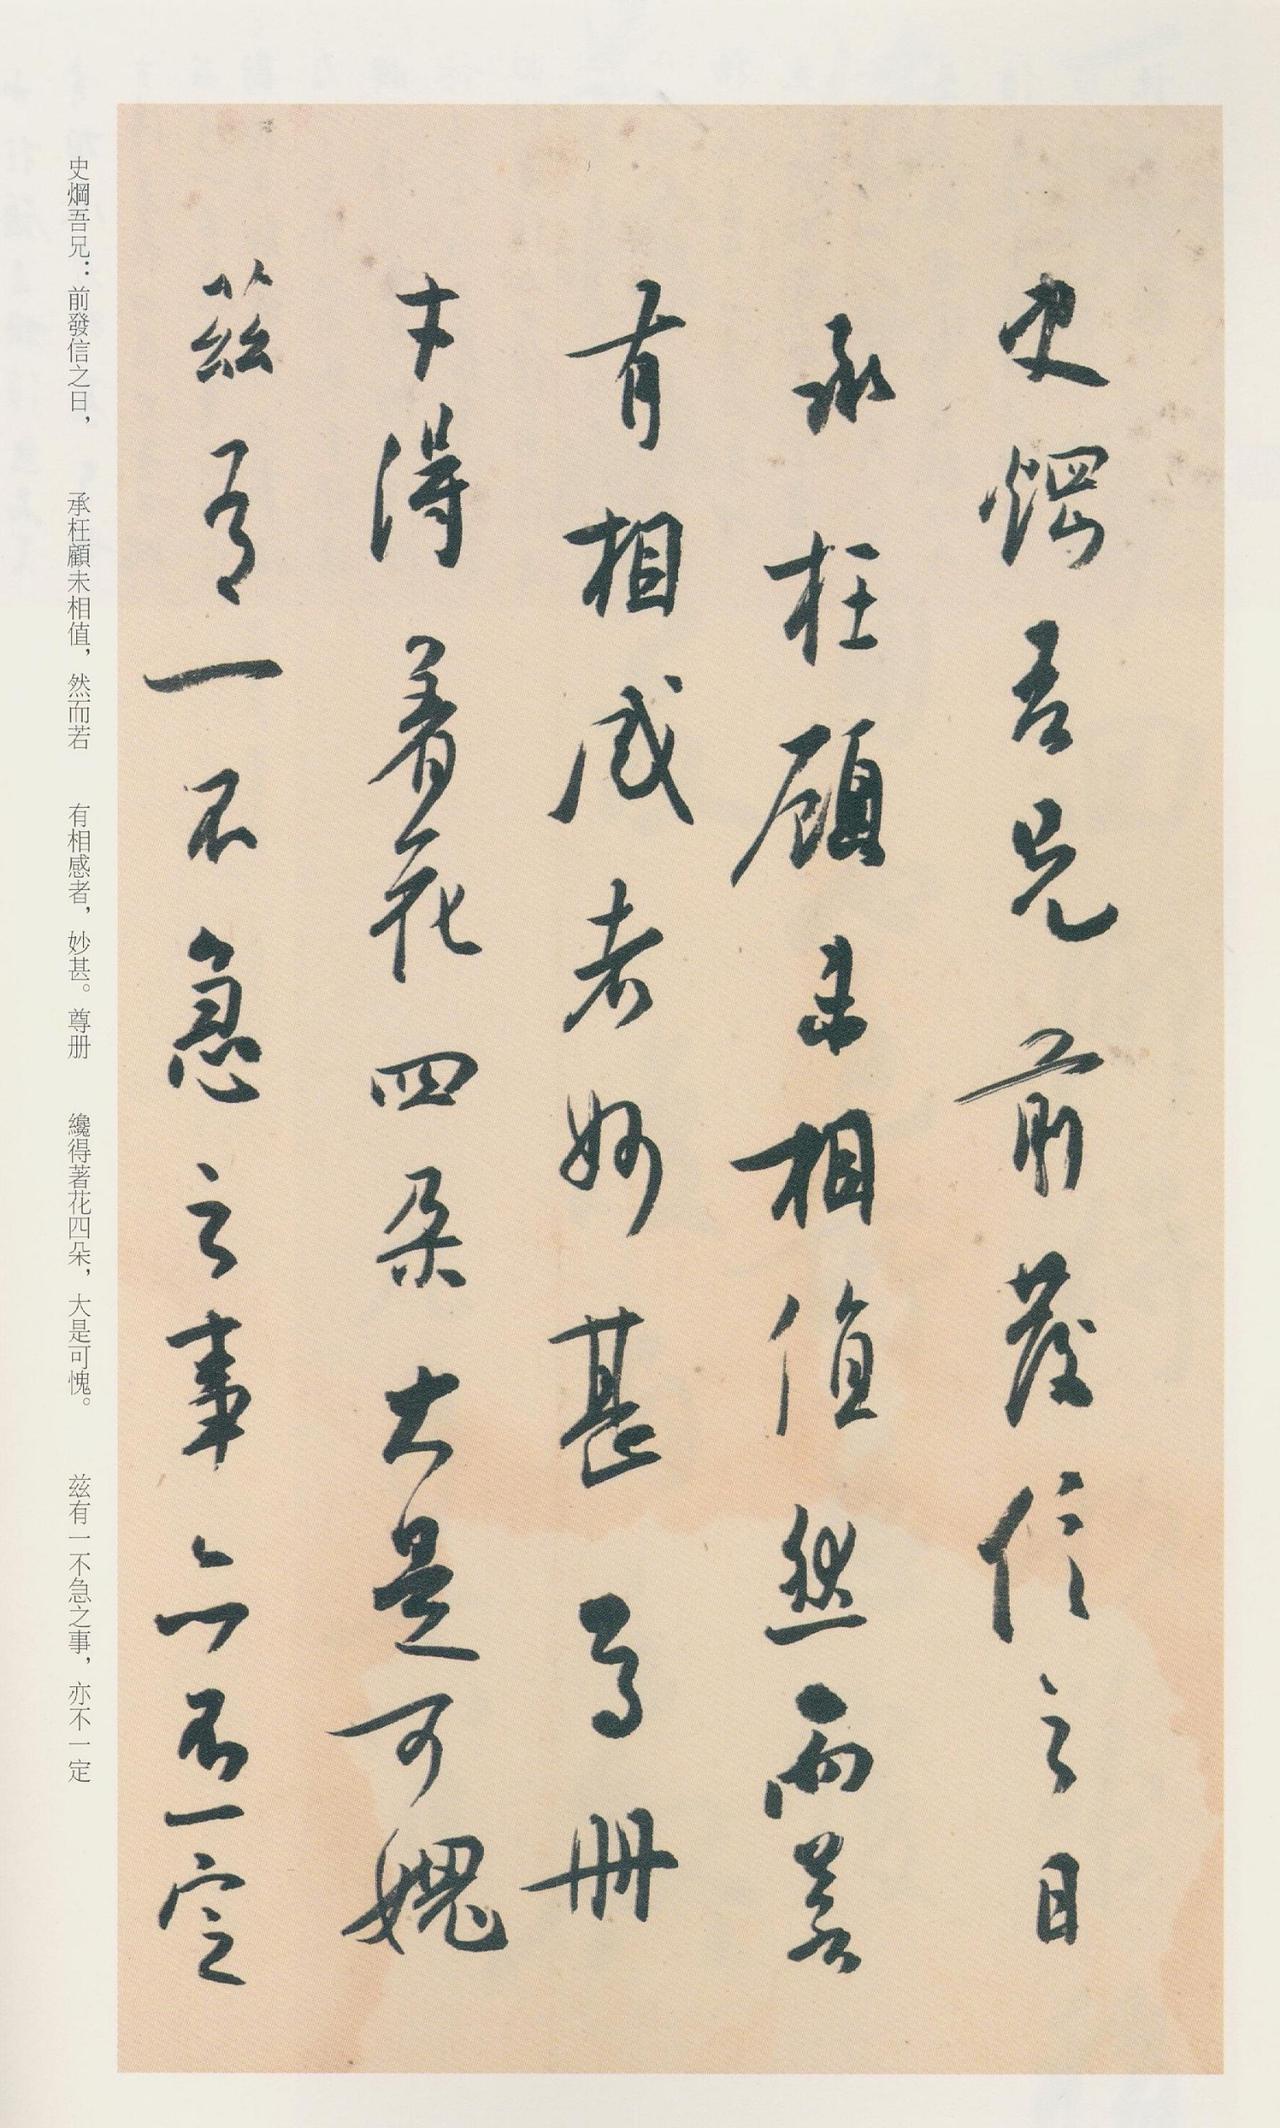 史焵吾兄前發信之日
承枉顧未相值然而若
有相感者妙甚尊册
才得着花四朵大是可媿
茲有一不急之事亦不一定
史焵吾兄：前發信之日，　承枉顧未相值，然而若　有相感者，妙甚。尊册　纔得著花四朵，大是可愧。　茲有一不急之事，亦不一定